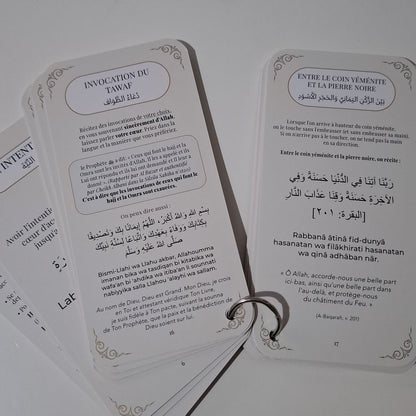 INVOCATION DU
TAWAF
دُعَاءُ الطَّوَافِ
Récitez des invocations de votre choix,
en vous souvenant sincèrement d'Allah.
laissez parler votre cœur. Priez dans la
langue et la manière que vous préferiez.
le Prophète ﷺ a dit : « Ceux qui font le hajj et la
Omra sont les invités d'Allah, il les a appelé et ils
Lui ont répondu et ils lui ont demandé et il leur a
donné ». (Rapporté par Al Bazar et authentifié
par Cheikh Albani dans la Silsila Sahiha n°1820)
C'est à dire que les invocations de ceux qui font le
hajj et la Omra sont exaucées.
On peut aussi dire :
بِسْمِ اللهِ وَاللهُ أَكْبَرُ، اللَّهُمَّ إِيمَانًا بِكَ وَتَصْدِيقًا
بِكِتَابِكَ وَوَفَاءً بِعَهْدِكَ وَاتِّبَاعًا لِسُنَّةِ نَبِيِّكَ
صَلَّى اللهُ عَلَيْهِ وَسَلَّمَ
Bismi-Llahi wa Llahu akbar, Allahoumma
imanan bika wa tasdiqan bi kitabika wa
wafa'an bi 'ahdika wa itiba'an li sounnati
nabiyyika salla Llahou 'alayhi wa sallam.
Au nom de Dieu, Dieu est Grand. Mon Dieu, je crois
en Toi et attestant véridique Ton Livre,
je suis fidèle à Ton pacte, suivant la sounna
de Ton Prophète, que la paix et la bénédiction de
Dieu soient sur lui.
16
ENTRE LE COIN YÉMÉNITE
ET LA PIERRE NOIRE
بَيْنَ الرُّكْنِ الْيَمَانِيِّ وَالْحَجَرِ الْأَسْوَدِ
Lorsque l'on arrive à hauteur du coin yéménite,
on le touche sans l'embrasser ici et sans embrasser sa main.
Si on n'arrive pas à le toucher, on ne fait rien
et on continue.
Entre le coin yéménite et la pierre noire, on récite :
رَبَّنَا آتِنَا فِي الدُّنْيَا حَسَنَةً وَفِي
الآخِرَةِ حَسَنَةً وَقِنَا عَذَابَ النَّارِ
[البقرة: ٢٠١]
Rabbanâ âtinâ fid-dunyâ
hasanatan wa filâkhirati hasanatan
wa qinâ adhâban nâr.
« Ô Allah, accorde-nous une belle part
ici-bas, ainsi qu'une belle part dans
l'au-delà, et protège-nous
du châtiment du Feu. »
(A-Baqarah, v. 201)
17
L'INTENT
Avoir l'intentio
cœur d'
jusqu'à
dans